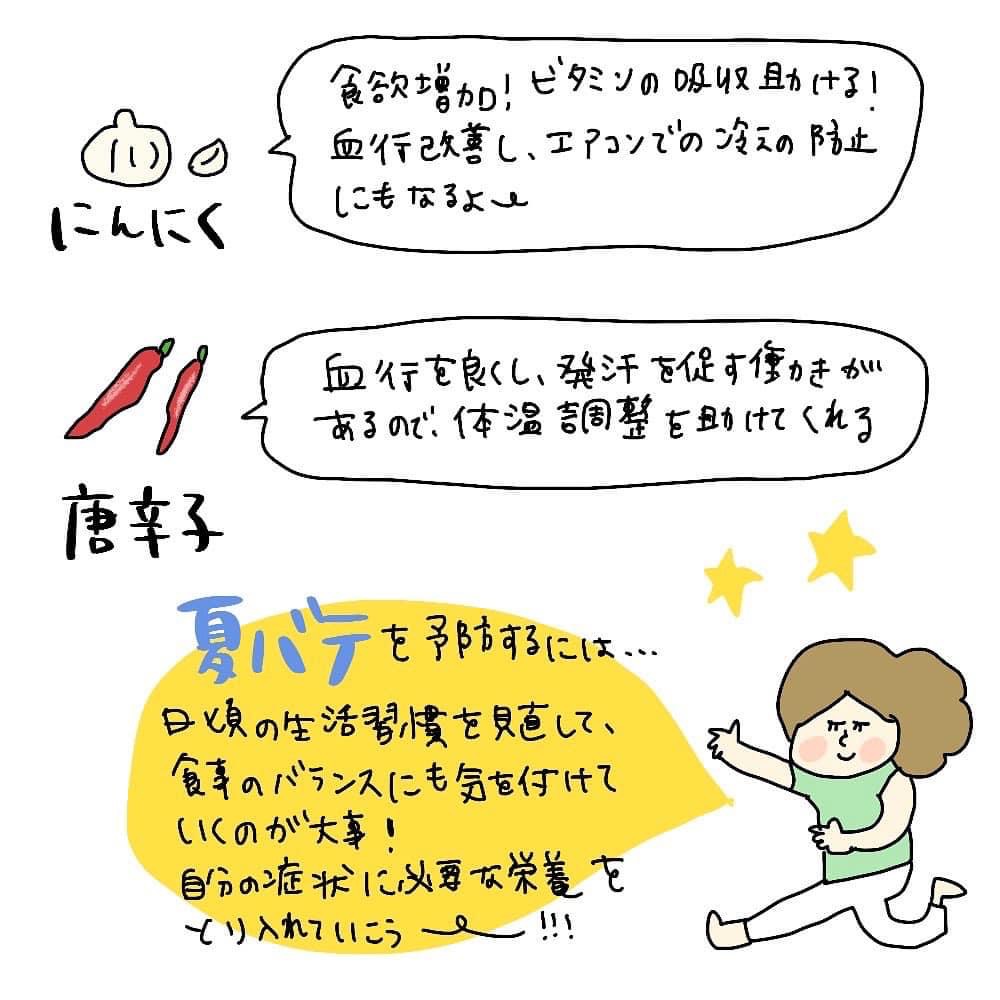 食欲増加!ビタミンの吸収助ける!
血行改善し、エアコンでの冷えの防止
にもなるよ〜
にんにく
血行を良くし、発汗を促す働きが
あるので、体温調整を助けてくれる
唐辛子
夏バテを予防するには...
日頃の生活習慣を見直して、
食事のバランスにも気を付けて
いくのが大事!
自分の症状に必要な栄養を
とり入れていこう〜!!!